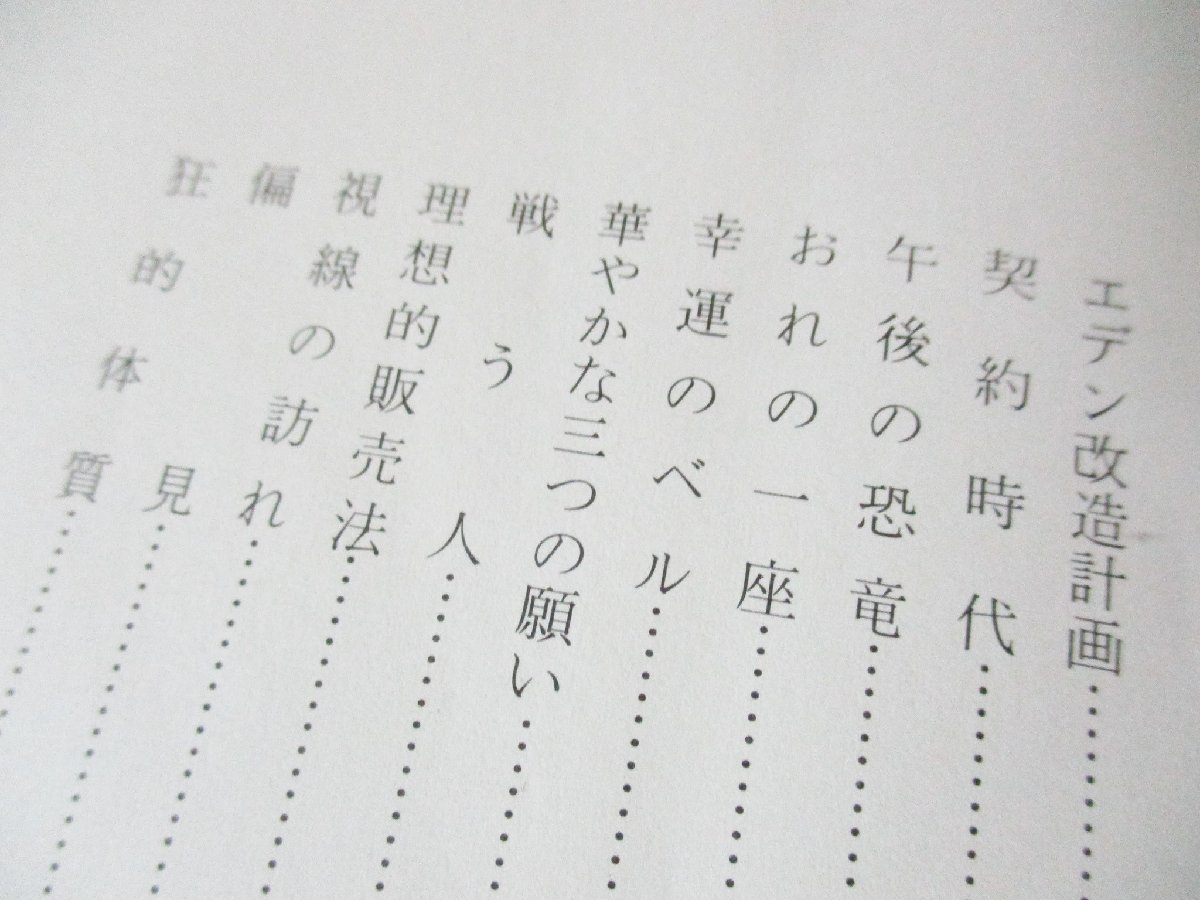 エデン改造計画
契約時代
午後の恐竜
おれの一座
幸運のベル
華やかな三つの願い
戦う人
理想的販売法
視線の訪れ
偏見
狂的体質